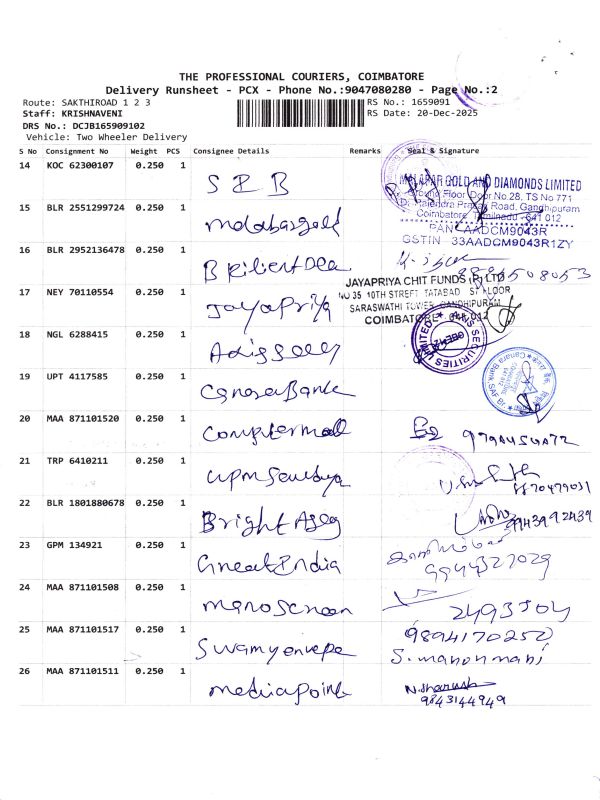 THE PROFESSIONAL COURIERS, COIMBATORE
Delivery Runsheet - PCX - Phone No.:9047080280 - Page No.:2
Route: SAKTHIROAD 1 2 3
RS No.: 1659091
Staff: KRISHNAVENI
RS Date: 20-Dec-2025
DRS No.: DCJB165909102
Vehicle: Two Wheeler Delivery
S No Consignment No Weight PCS Consignee Details Remarks Seal & Signature
14 KOC 62300107 0.250 1 S I B
MALABAR GOLD AND DIAMONDS LIMITED
Ground Floor, Door No.28, TS No 771
Dr. Rajendra Prasad Road, Gandhipuram
Coimbatore, Tamilnadu - 641 012
PAN: AADCM9043R
GSTIN 33AADCM9043R1ZY
15 BLR 2551299724 0.250 1 Malabargold
16 BLR 2952136478 0.250 1
17 NEY 70110554 0.250 1 Jayapriya
JAYAPRIYA CHIT FUNDS (P) LTD
NO 35 10TH STREET TATABAD
SARASWATHI TOWER, GANDHIPURAM,
COIMBATORE - 641 012
18 NGL 6288415 0.250 1
SECURITIES LIMITED
19 UPT 4117585 0.250 1 CanaraBank
Canara Bank
20 MAA 871101520 0.250 1 Computermall
21 TRP 6410211 0.250 1
8870479031
22 BLR 1801880678 0.250 1
9943992439
23 GPM 134921 0.250 1 GreatIndia
9944327029
24 MAA 871101508 0.250 1
25 MAA 871101517 0.250 1
9894170250
S. manonmani
26 MAA 871101511 0.250 1 mediapoint
9843144949